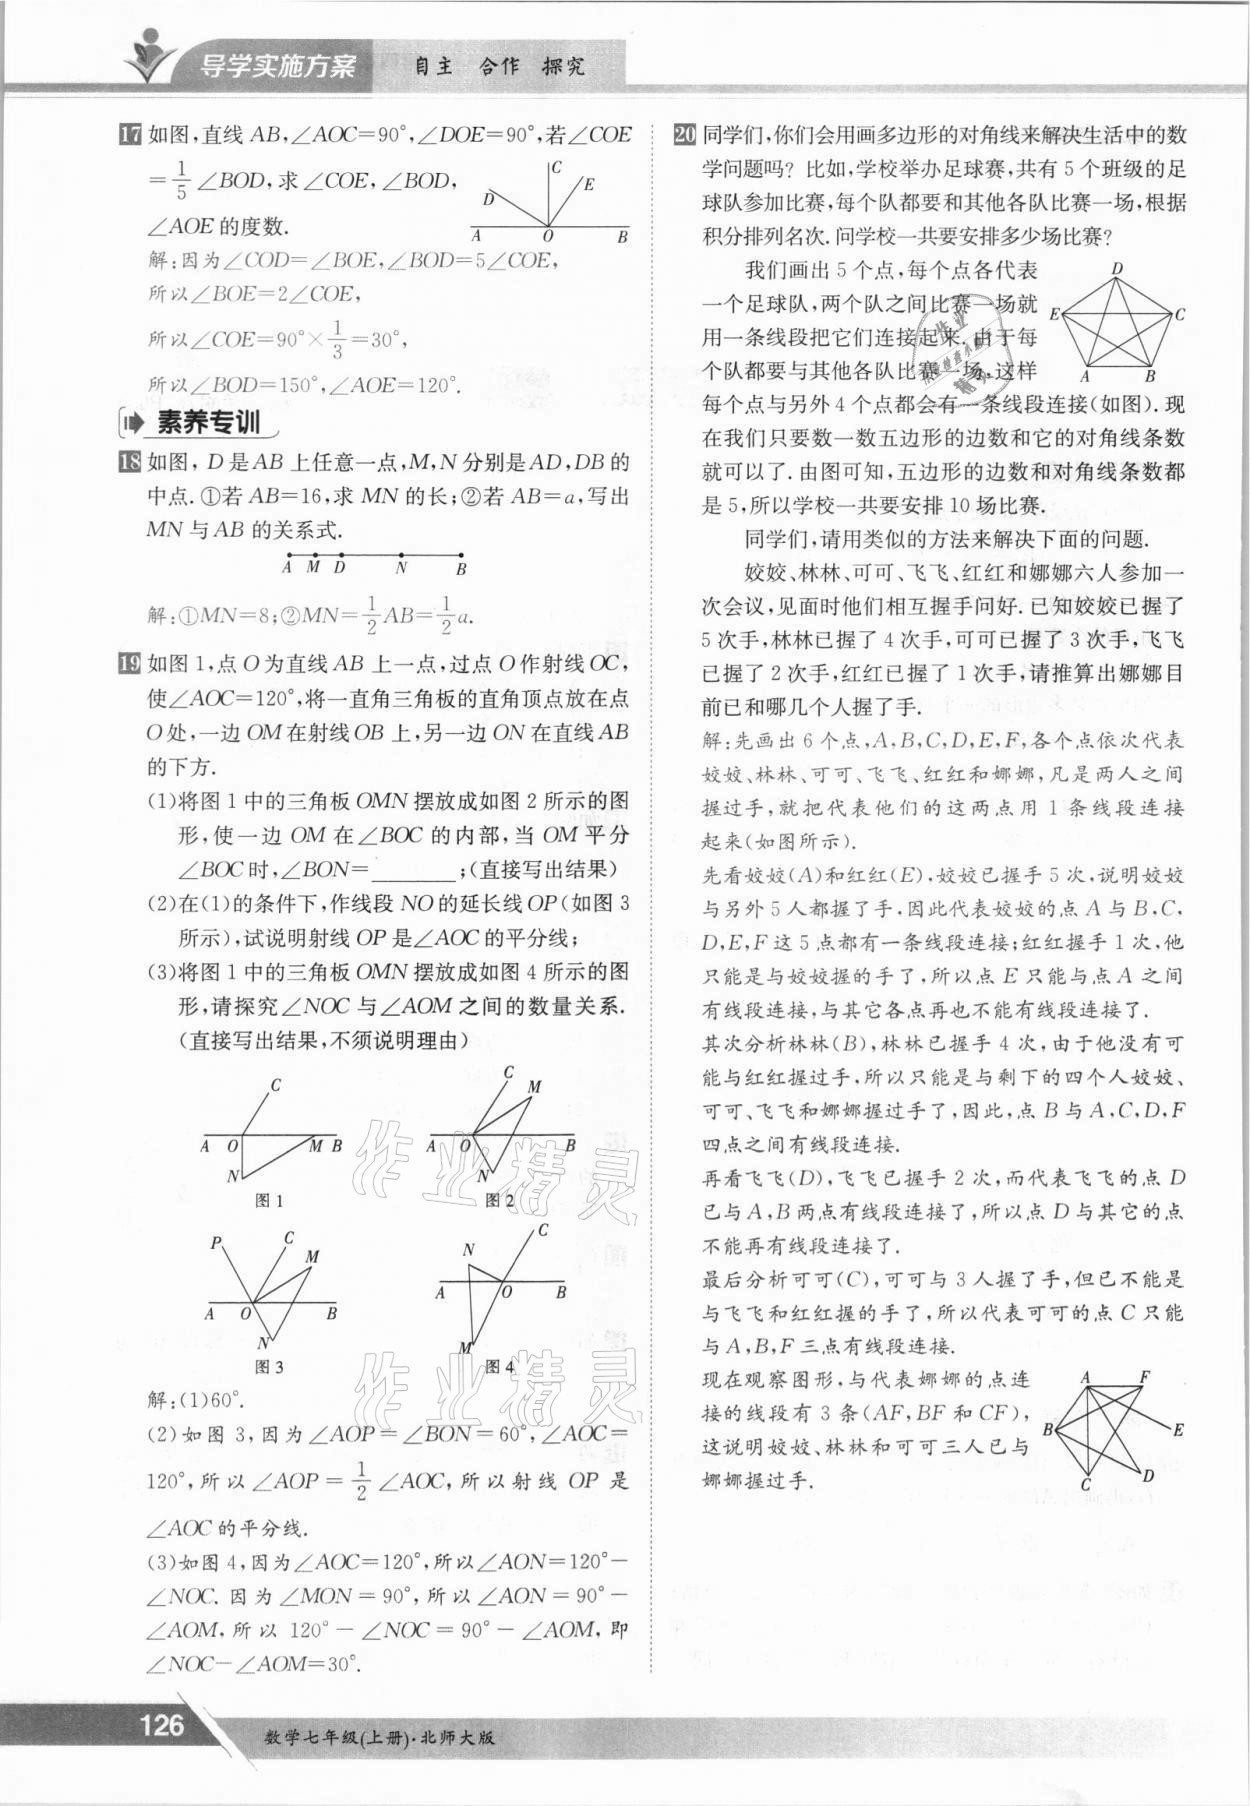 导学实施方案 自主 合作 探究
17 如图,直线 AB,∠AOC=90°,∠DOE=90°,若∠COE
=1/5∠BOD,求∠COE,∠BOD,
∠AOE 的度数.
C
D
E
A
O
B
解:因为∠COD=∠BOE,∠BOD=5∠COE,
所以∠BOE=2∠COE,
所以∠COE=90°×1/3=30°,
所以∠BOD=150°,∠AOE=120°.
素养专训
18 如图,D 是 AB 上任意一点,M,N 分别是 AD,DB 的
中点.①若 AB=16,求 MN 的长;②若 AB=a,写出
MN 与 AB 的关系式.
A M D N B
解:①MN=8;②MN=1/2AB=1/2a.
19 如图 1,点 O 为直线 AB 上一点,过点 O 作射线 OC,
使∠AOC=120°,将一直角三角板的直角顶点放在点
O 处,一边 OM 在射线 OB 上,另一边 ON 在直线 AB
的下方.
(1)将图 1 中的三角板 OMN 摆放成如图 2 所示的图
形,使一边 OM 在∠BOC 的内部,当 OM 平分
∠BOC 时,∠BON=________;(直接写出结果)
(2)在(1)的条件下,作线段 NO 的延长线 OP(如图 3
所示),试说明射线 OP 是∠AOC 的平分线;
(3)将图 1 中的三角板 OMN 摆放成如图 4 所示的图
形,请探究∠NOC 与∠AOM 之间的数量关系.
(直接写出结果,不须说明理由)
C
A O M B
N
图 1
C
M
A O B
N
图 2
P
C
M
A O B
N
图 3
C
N
A O B
M
图 4
解:(1)60°.
(2)如图 3,因为∠AOP=∠BON=60°,∠AOC=
120°,所以∠AOP=1/2∠AOC,所以射线 OP 是
∠AOC 的平分线.
(3)如图 4,因为∠AOC=120°,所以∠AON=120°-
∠NOC.因为∠MON=90°,所以∠AON=90°-
∠AOM,所以 120°-∠NOC=90°-∠AOM,即
∠NOC-∠AOM=30°.
20 同学们,你们会用画多边形的对角线来解决生活中的数
学问题吗?比如,学校举办足球赛,共有 5 个班级的足
球队参加比赛,每个队都要和其他各队比赛一场,根据
积分排列名次.问学校一共要安排多少场比赛?
我们画出 5 个点,每个点各代表
一个足球队,两个队之间比赛一场就
用一条线段把它们连接起来.由于每
个队都要与其他各队比赛一场,这样
D
E
C
A
B
每个点与另外 4 个点都会有一条线段连接(如图).现
在我们只要数一数五边形的边数和它的对角线条数
就可以了.由图可知,五边形的边数和对角线条数都
是 5,所以学校一共要安排 10 场比赛.
同学们,请用类似的方法来解决下面的问题.
姣姣、林林、可可、飞飞、红红和娜娜六人参加一
次会议,见面时他们相互握手问好.已知姣姣已握了
5 次手,林林已握了 4 次手,可可已握了 3 次手,飞飞
已握了 2 次手,红红已握了 1 次手,请推算出娜娜目
前已和哪几个人握了手.
解:先画出 6 个点,A,B,C,D,E,F,各个点依次代表
姣姣、林林、可可、飞飞、红红和娜娜,凡是两人之间
握过手,就把代表他们的这两点用 1 条线段连接
起来(如图所示).
先看姣姣(A)和红红(E),姣姣已握手 5 次,说明姣姣
与另外 5 人都握了手,因此代表姣姣的点 A 与 B,C,
D,E,F 这 5 点都有一条线段连接;红红握手 1 次,他
只能是与姣姣握的手了,所以点 E 只能与点 A 之间
有线段连接,与其它各点再也不能有线段连接了.
其次分析林林(B),林林已握手 4 次,由于他没有可
能与红红握过手,所以只能是与剩下的四个人姣姣、
可可、飞飞和娜娜握过手了,因此,点 B 与 A,C,D,F
四点之间有线段连接.
再看飞飞(D),飞飞已握手 2 次,而代表飞飞的点 D
已与 A,B 两点有线段连接了,所以点 D 与其它的点
不能再有线段连接了.
最后分析可可(C),可可与 3 人握了手,但已不能是
与飞飞和红红握的手了,所以代表可可的点 C 只能
与 A,B,F 三点有线段连接.
现在观察图形,与代表娜娜的点连
接的线段有 3 条(AF,BF 和 CF),
这说明姣姣、林林和可可三人已与
娜娜握过手.
A
F
B
E
C
D
作业精灵
作业精灵
126
数学七年级(上册)·北师大版